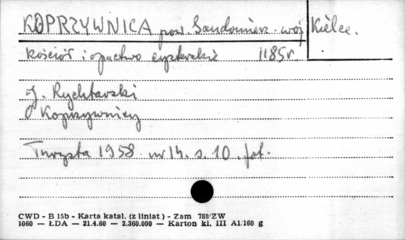 KOPRZYWNICA pow. Sandomierz. woj. Kielce.
Kościół i opactwo cysterskie 1185 r.
J. Rychtarski
O Koprzywnicy
Turysta 1958 nr 14. s. 10. fot.
CWD - B 15b - Karta katal. (z liniat) - Zam 788/ZW
1060 — ŁDA — 21.4.60 — 2.360.000 — Karton kl. III A1/160 g